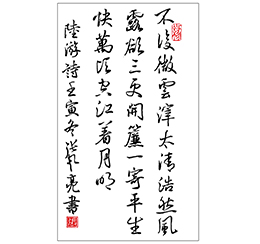 不復微雲滓太清浩然風
露欲三更開簾一寄平生
快萬頃空江着月明
陸游詩壬寅冬亮書